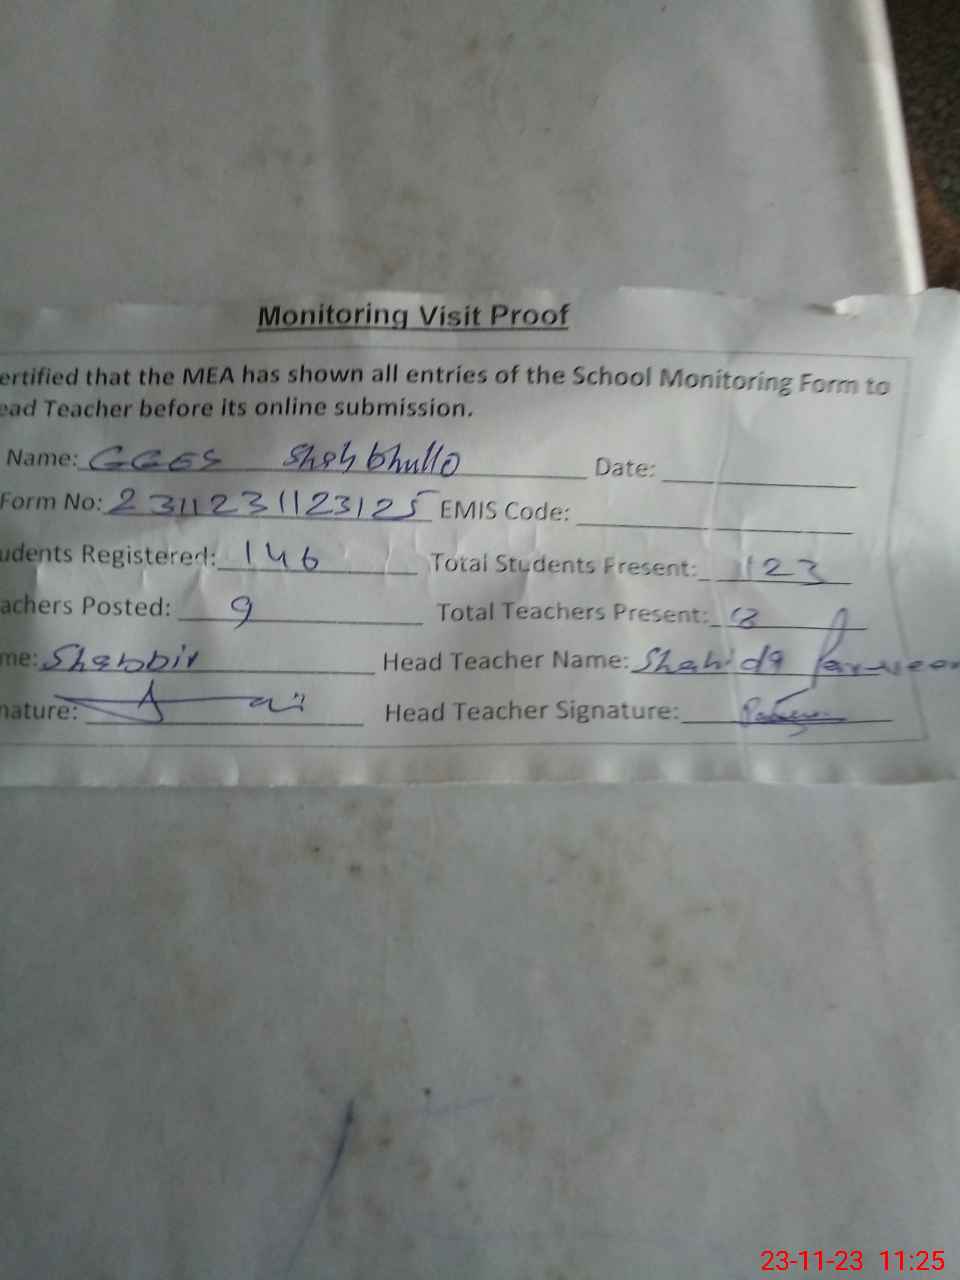 Monitoring Visit Proof
ertified that the MEA has shown all entries of the School Monitoring Form to
ead Teacher before its online submission.
Name: GGES Shahbhullo Date:
Form No: 2311231123125 EMIS Code:
udents Registered: 146 Total Students Present: 123
achers Posted: 9 Total Teachers Present: 8
me: Shabbir Head Teacher Name: Shahida Parveen
nature: Head Teacher Signature:
23-11-23 11:25